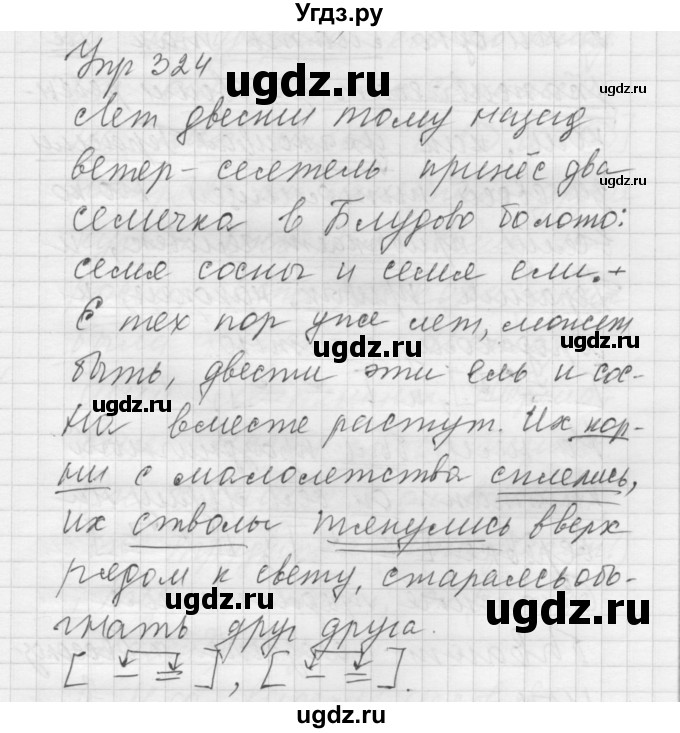 Угдз.ру
Упр 324
ugdz.ru ugdz.ru
Лет двести тому назад
ветер-сеятель принёс два
ugdz.ru
семечка в Блудово болото:
семя сосны и семя ели.+
ugdz.ru
С тех пор уже лет, может
ugdz.ru
быть, двести эти ель и сос-
ugdz.ru
на вместе растут. Их кор-
ни с малолетства сплелись,
их стволы тянулись вверх
рядом к свету, стараясь обо-
ugdz.ru ugdz.ru
гнать друг друга.
[ — = ], [ — = ].
ugdz.ru